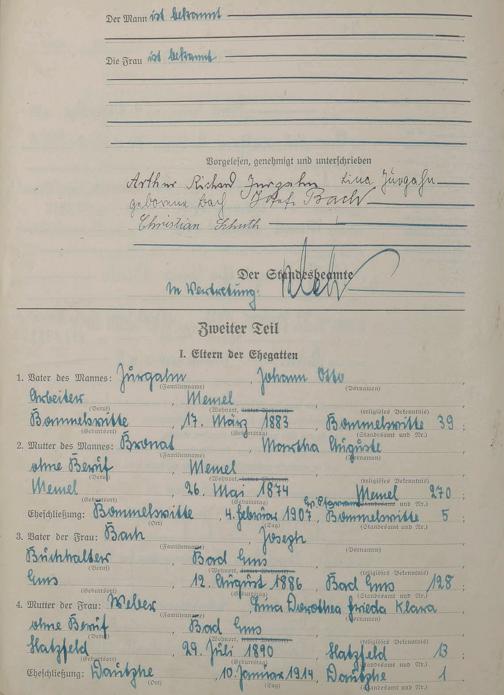 Der Mann ist bekannt
Die Frau ist bekannt
Vorgelesen, genehmigt und unterschrieben
Arthur Richard Jurgahn Lina Jürgahn
geborene Bach Josef Bach
Christian Schuth
Der Standesbeamte
In Vertretung:
Zweiter Teil
I. Eltern der Ehegatten
1. Vater des Mannes: Jurgahn, Johann Otto,
(Familienname) (Vornamen)
Arbeiter, Memel,
(Beruf) (Wohnort, (religiöses Bekenntnis)
Bommelsvitte, 17. März 1883, Bommelsvitte 39;
(Geburtsort) (Geburtstag) (Standesamt und Nr.)
2. Mutter des Mannes: Bronat, Martha Auguste
(Familienname) (Vornamen)
ohne Beruf, Memel,
(Beruf) (Wohnort, (religiöses Bekenntnis)
Memel, 26. Mai 1874, Memel 270;
(Geburtsort) (Geburtstag) (Standesamt und Nr.)
Eheschließung: Bommelsvitte, 4. Februar 1907, Bommelsvitte 5;
(Ort) (Tag) (Standesamt und Nr.)
3. Vater der Frau: Bach, Joseph,
(Familienname) (Vornamen)
Buchhalter, Bad Ems,
(Beruf) (Wohnort, (religiöses Bekenntnis)
Ems, 12. August 1886, Bad Ems 128;
(Geburtsort) (Geburtstag) (Standesamt und Nr.)
4. Mutter der Frau: Weber, Lina Dorothea Frieda Klara,
(Familienname) (Vornamen)
ohne Beruf, Bad Ems,
(Beruf) (Wohnort, (religiöses Bekenntnis)
Hatzfeld, 29. Juli 1890, Hatzfeld 13;
(Geburtsort) (Geburtstag) (Standesamt und Nr.)
Eheschließung: 10. Januar 1914, 1
(Ort) (Tag) (Standesamt und Nr.)